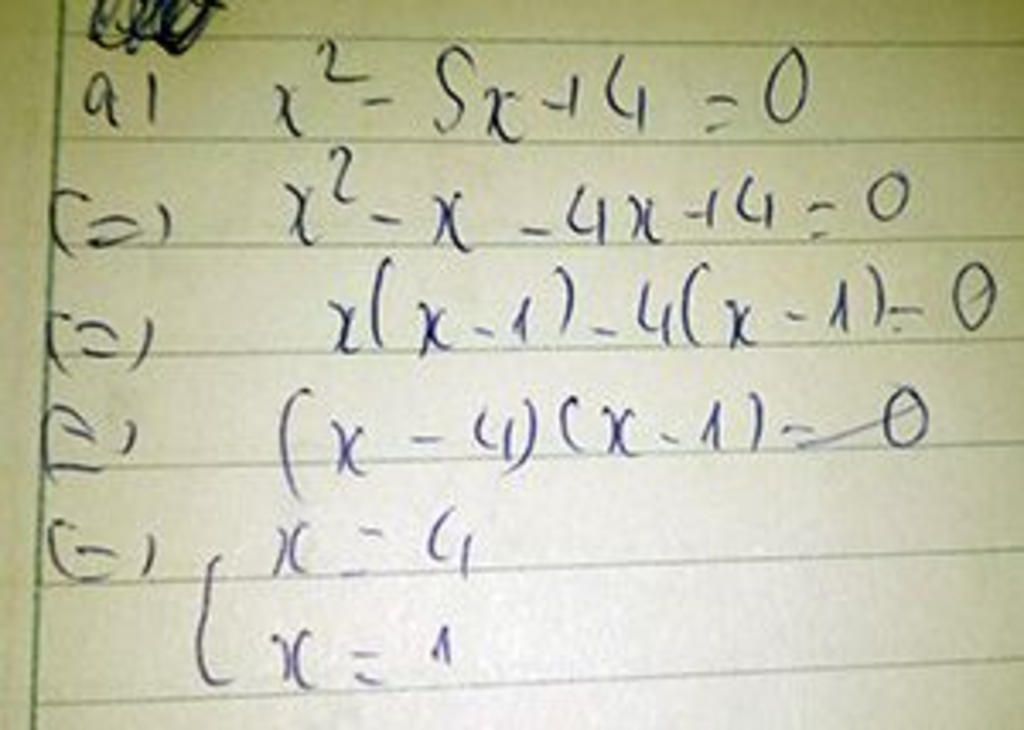 a) x² - 5x + 4 = 0
(=) x² - x - 4x + 4 = 0
(=) x(x - 1) - 4(x - 1) = 0
(=) (x - 4)(x - 1) = 0
(=) [ x = 4
x = 1